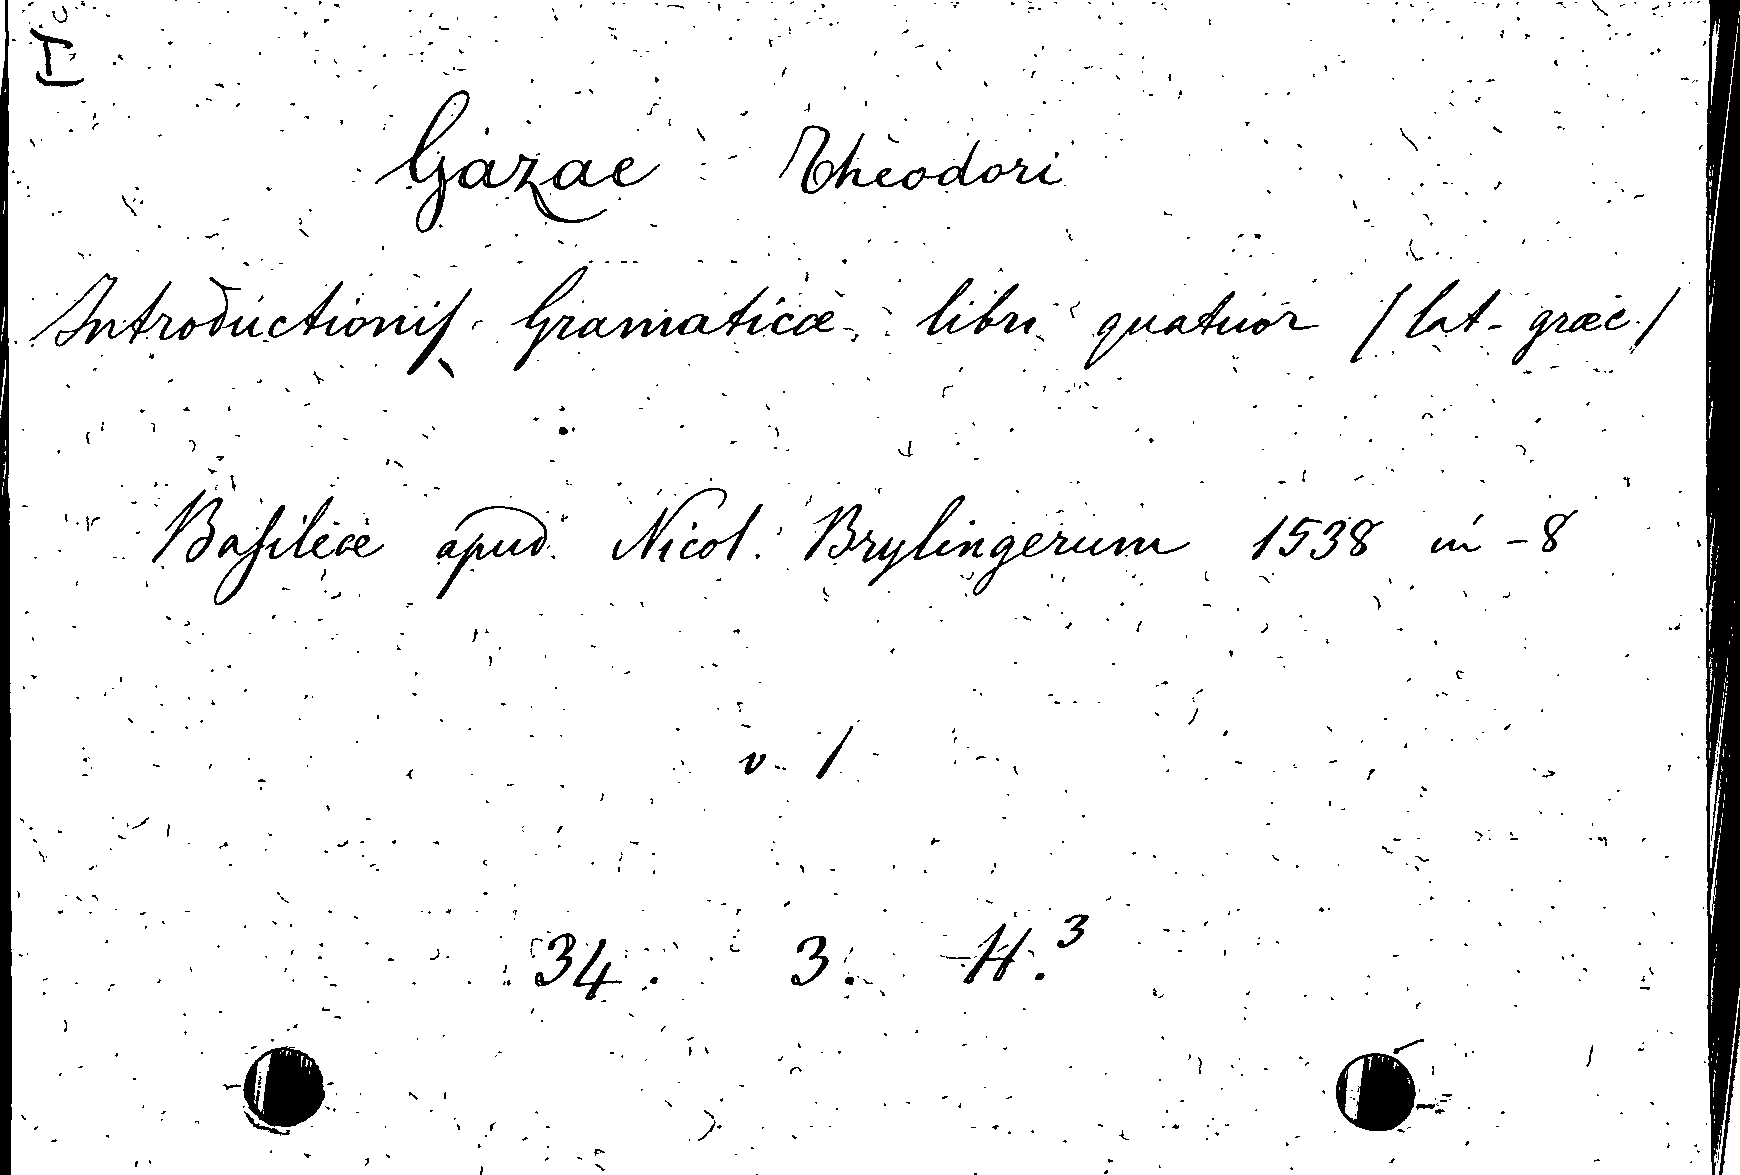 I
Gazae Theodori
Introductionis Gramaticæ libri quatuor /lat. græc./
Basileæ apud Nicol. Brylingerum 1538 in-8
v. 1
34. 3. H.3